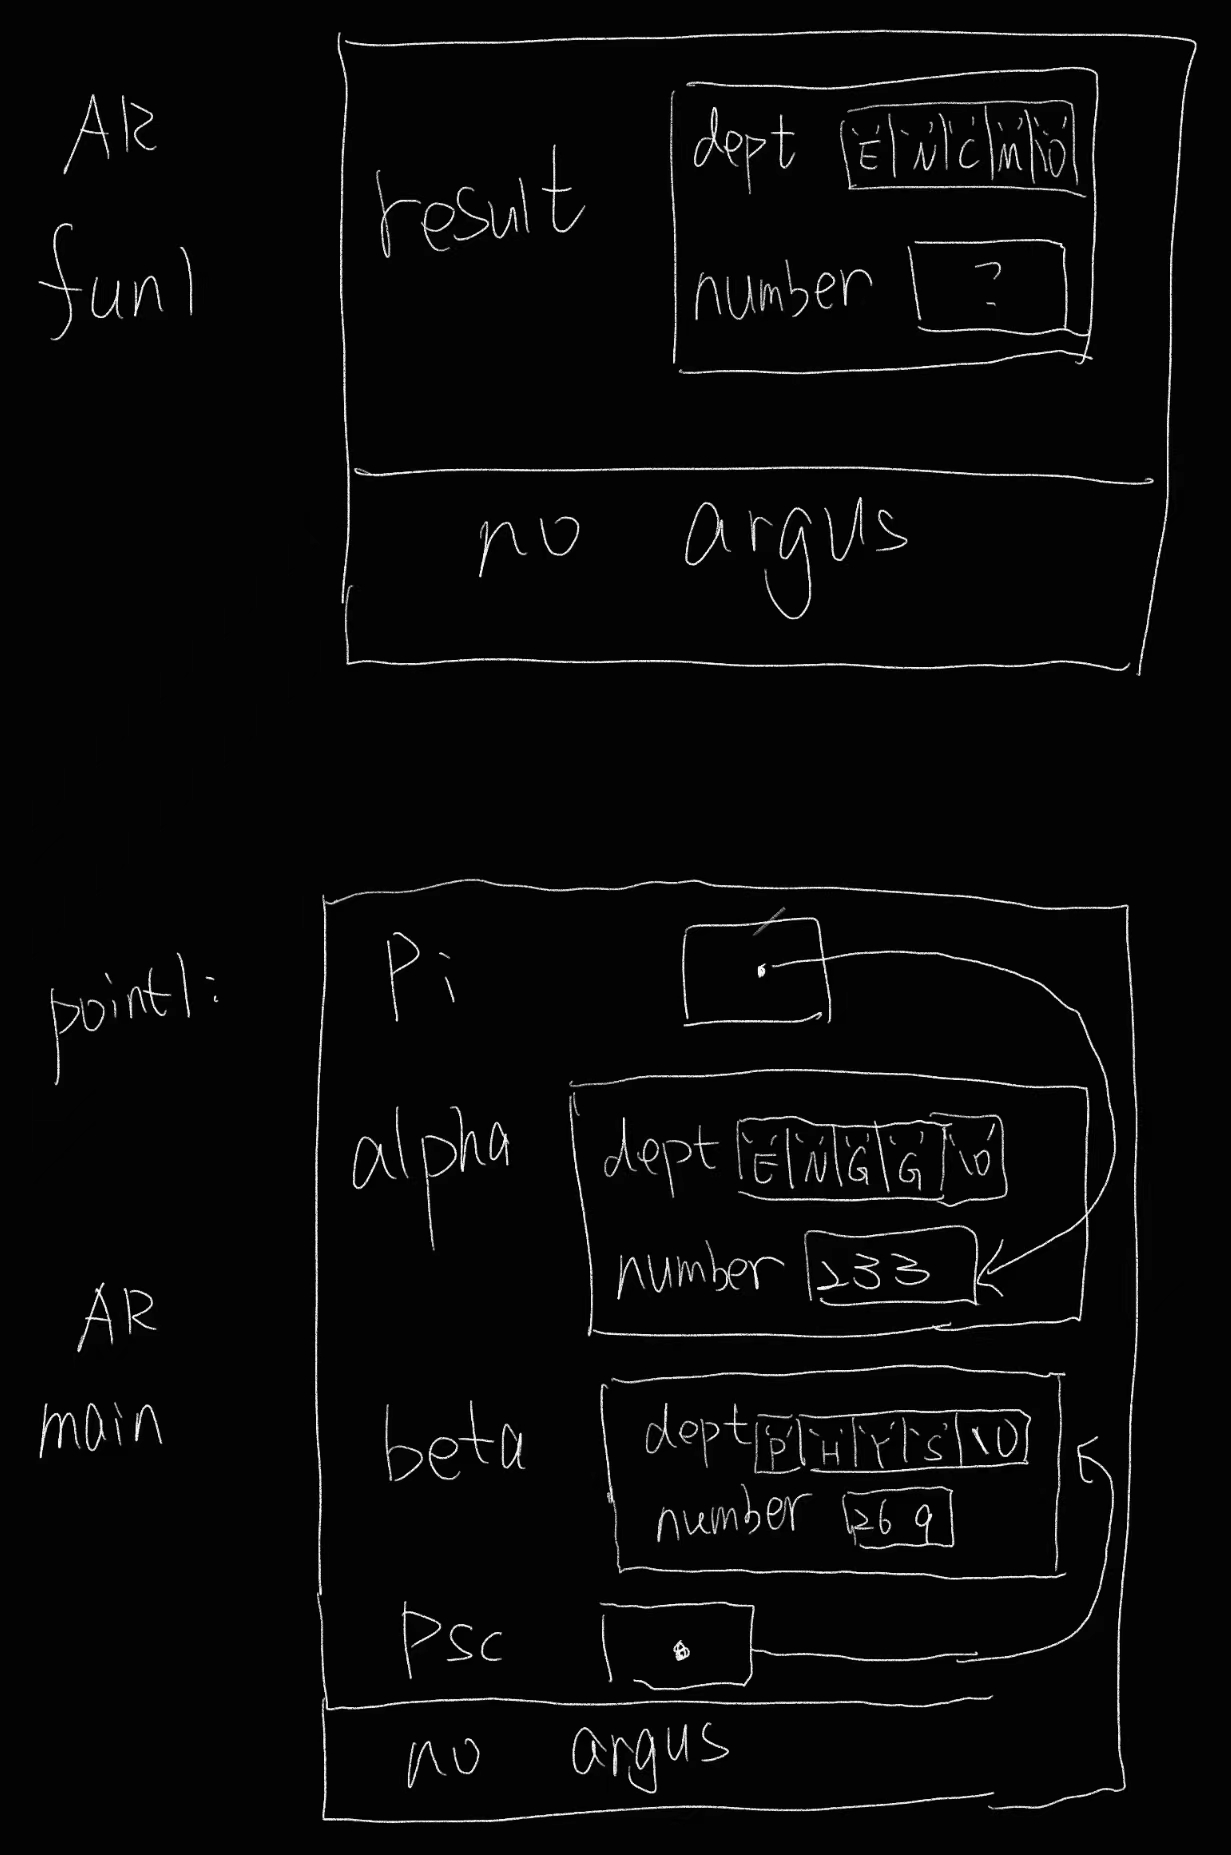 AR
fun1
result
dept 'E' 'N' 'C' 'M' '\0'
number ?
no argus
point1:
AR
main
Pi
alpha
dept 'E' 'N' 'G' 'G' '\0'
number 233
beta
dept 'P' 'H' 'Y' 'S' '\0'
number 269
Psc
no argus